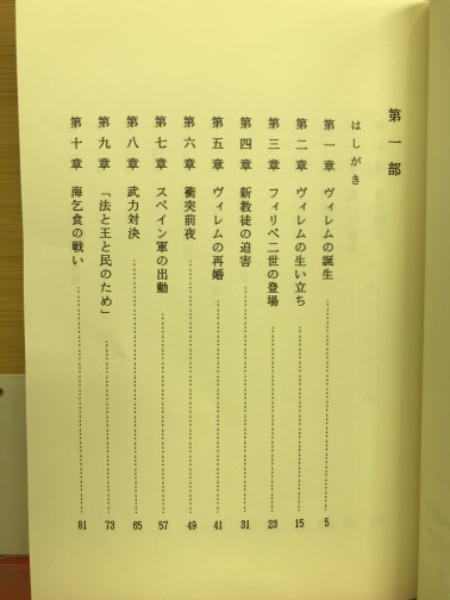 第一部
はしがき
第一章 ヴィレムの誕生 5
第二章 ヴィレムの生い立ち 15
第三章 フィリペ二世の登場 23
第四章 新教徒の迫害 31
第五章 ヴィレムの再婚 41
第六章 衝突前夜 49
第七章 スペイン軍の出動 57
第八章 武力対決 65
第九章 「法と王と民のため」 73
第十章 海乞食の戦い 81